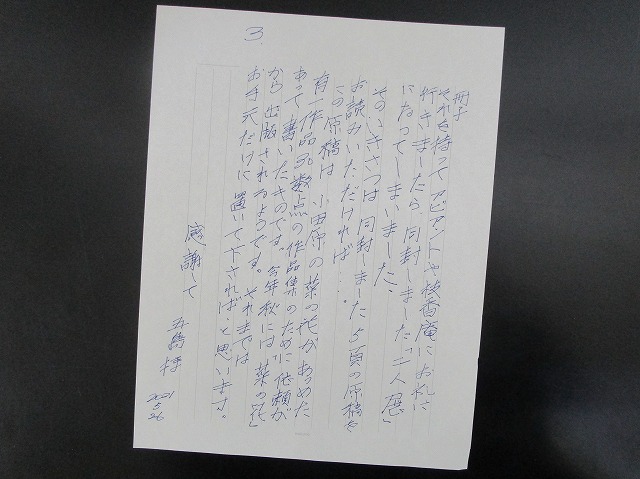 3
冊子
それを持ってアビアントや枝香庵にお礼に
行きましたら、同封しました「二人展」
になってしまいました、
そのいきさつは同封しました5頁の原稿を
お読みいただければ…。
この原稿は小田原の菜の花があつめた
有一作品30数点の作品集のために依頼が
あって書いたものです。今年秋には「菜の花」
から出版されるようです。それまでは
お手元だけに置いて下されば、と思います。
感謝して
五島様
2021
5
26